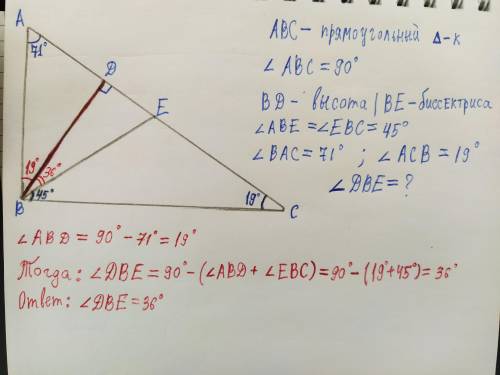 A
71°
D
E
19°
36°
45°
B
19°
C
ABC – прямоугольный Δ-к
∠ABC = 90°
BD – высота | BE – биссектриса
∠ABE = ∠EBC = 45°
∠BAC = 71° ; ∠ACB = 19°
∠DBE = ?
∠ABD = 90° – 71° = 19°
Тогда: ∠DBE = 90° – (∠ABD + ∠EBC) = 90° – (19° + 45°) = 36°
Ответ: ∠DBE = 36°